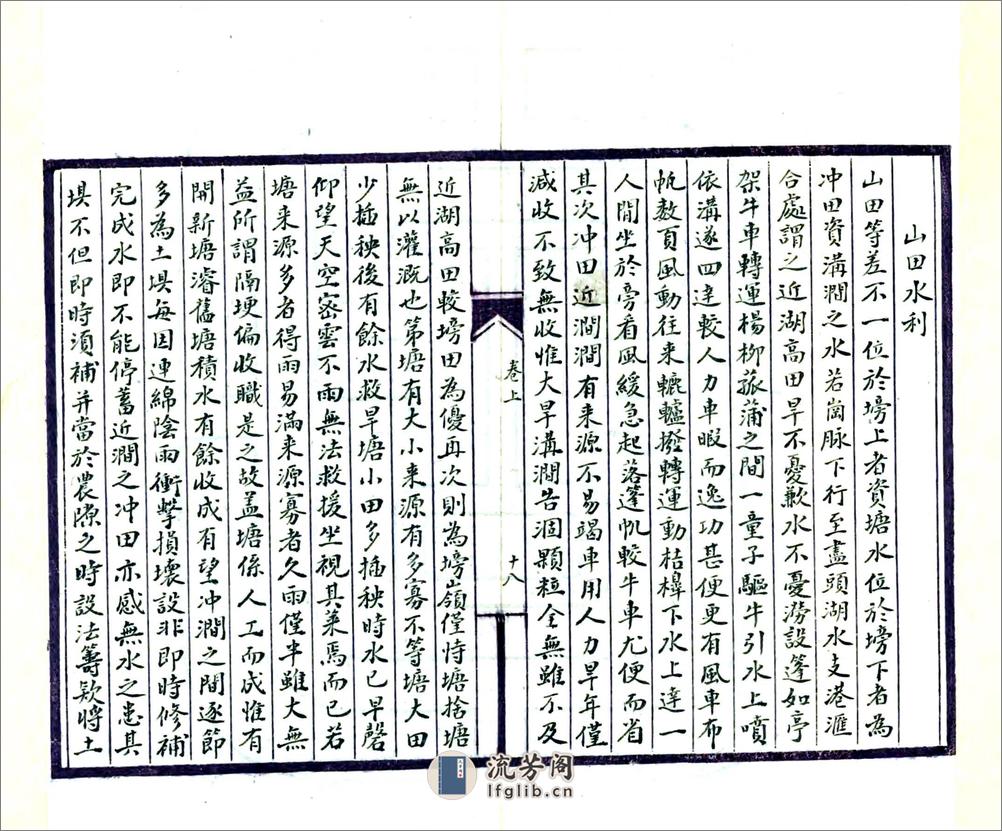 山田水利
山田等差不一位於塝上者資塘水位於塝下者為
冲田資溝澗之水若崗脉下行至盡頭湖水支港滙
合處謂之近湖高田旱不憂歉水不憂澇設篷如亭
架牛車轉運楊柳菰蒲之間一童子驅牛引水上噴
依溝遂四達較人力車暇而逸功甚便更有風車布
帆數頁風動往来轆轤撥轉運動桔槔下水上達一
人閒坐於旁看風緩急起落篷帆較牛車尤便而省
其次冲田近澗澗有来源不易竭車用人力旱年僅
減收不致無收惟大旱溝澗告涸顆粒全無雖不及
卷上
十八
近湖高田較塝田為優再次則為塝嶺僅恃塘捨塘
無以灌溉也第塘有大小来源有多寡不等塘大田
少插秧後有餘水救旱塘小田多插秧時水已早罄
仰望天空密雲不雨無法救援坐視其萊焉而已若
塘来源多者得雨易滿来源寡者久雨僅半雖大無
益所謂隔埂偏收職是之故盖塘係人工而成惟有
開新塘濬舊塘積水有餘收成有望冲澗之間逐節
多為土垻每因連綿陰雨衝擊損壞設非即時修補
完成水即不能停蓄近澗之冲田亦感無水之患其
垻不但即時須補并當於農隙之時設法籌欵將土
流芳阁
lfglib.cn